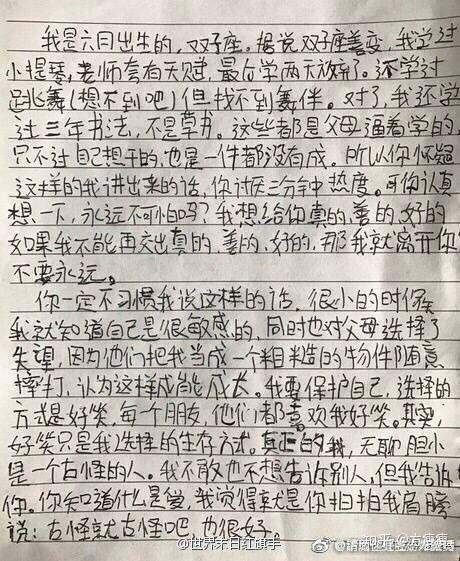 我是六月出生的，双子座。据说双子座善变，我学过
小提琴，老师夸有天赋，最后学两天放弃了。还学过
跳舞（想不到吧）但找不到舞伴。对了，我还学
过三年书法，不是草书。这些都是父母逼着学的，
只不过自己想干的，也是一件都没有成。所以你怀疑
这样的我讲出来的话，你讨厌三分钟热度。可你认真
想一下，永远不可怕吗？我想给你真的，善的，好的
如果我不能再交出真的，善的，好的，那我就离开你
不要永远。
你一定不习惯我说这样的话，很小的时候
我就知道自己是很敏感的，同时也对父母选择了
失望，因为他们把我当成一个粗糙的物件随意
摔打，认为这样成能成长。我要保护自己，选择的
方式是好笑，每个朋友，他们都喜欢我好笑。其实，
好笑只是我选择的生存方式。真正的我，无聊胆小
是一个古怪的人。我不敢也不想告诉别人，但我告诉
你。你知道什么是爱，我觉得就是你拍拍我肩膀
说：古怪就古怪吧，也很好。
@世界末日红旗手
知乎